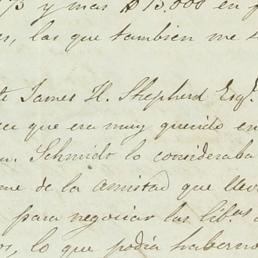 y mas $15.000 en
las que tambien me
James H. Shepherd Esqr.
que era muy querido en
Schmidt lo consideraba
de la amistad que
para negociar las lib.as
lo que podia